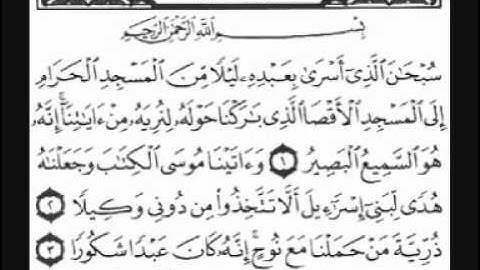 بِسْمِ اللَّهِ الرَّحْمَٰنِ الرَّحِيمِ
سُبْحَٰنَ الَّذِىٓ أَسْرَىٰ بِعَبْدِهِۦ لَيْلًا مِّنَ الْمَسْجِدِ الْحَرَامِ
إِلَى الْمَسْجِدِ الْأَقْصَا الَّذِى بَٰرَكْنَا حَوْلَهُۥ لِنُرِيَهُۥ مِنْ ءَايَٰتِنَآ ۚ إِنَّهُۥ
هُوَ السَّمِيعُ الْبَصِيرُ ١ وَءَاتَيْنَا مُوسَى الْكِتَٰبَ وَجَعَلْنَٰهُ
هُدًى لِّبَنِىٓ إِسْرَٰٓءِيلَ أَلَّا تَتَّخِذُوا۟ مِن دُونِى وَكِيلًا ٢
ذُرِّيَّةَ مَنْ حَمَلْنَا مَعَ نُوحٍ ۚ إِنَّهُۥ كَانَ عَبْدًا شَكُورًا ٣